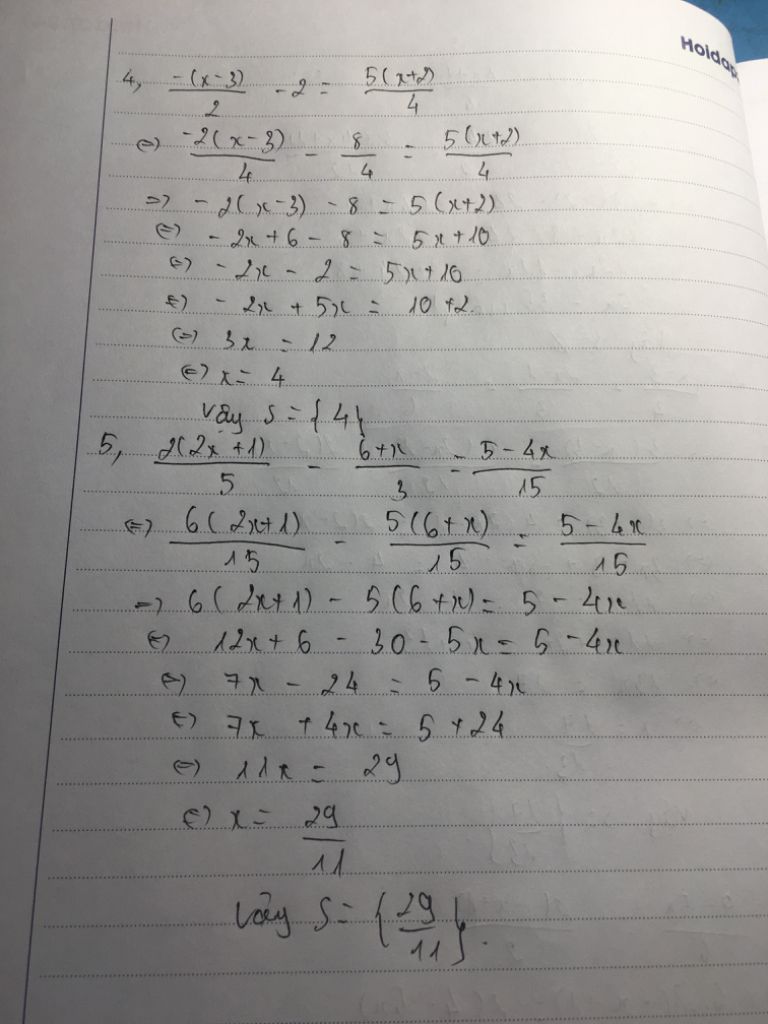 Hoidap
4, -(x-3)/2 - 2 = 5(x+2)/4
⇔ -2(x-3)/4 - 8/4 = 5(x+2)/4
⇒ -2(x-3) - 8 = 5(x+2)
⇔ -2x + 6 - 8 = 5x + 10
⇔ -2x - 2 = 5x + 10
⇔ -2x + 5x = 10 + 2
⇔ 3x = 12
⇔ x = 4
Vậy S = {4}
5, 2(2x+1)/5 - 6+x/3 = 5-4x/15
⇔ 6(2x+1)/15 - 5(6+x)/15 = 5-4x/15
⇒ 6(2x+1) - 5(6+x) = 5 - 4x
⇔ 12x + 6 - 30 - 5x = 5 - 4x
⇔ 7x - 24 = 5 - 4x
⇔ 7x + 4x = 5 + 24
⇔ 11x = 29
⇔ x = 29/11
Vậy S = {29/11}.